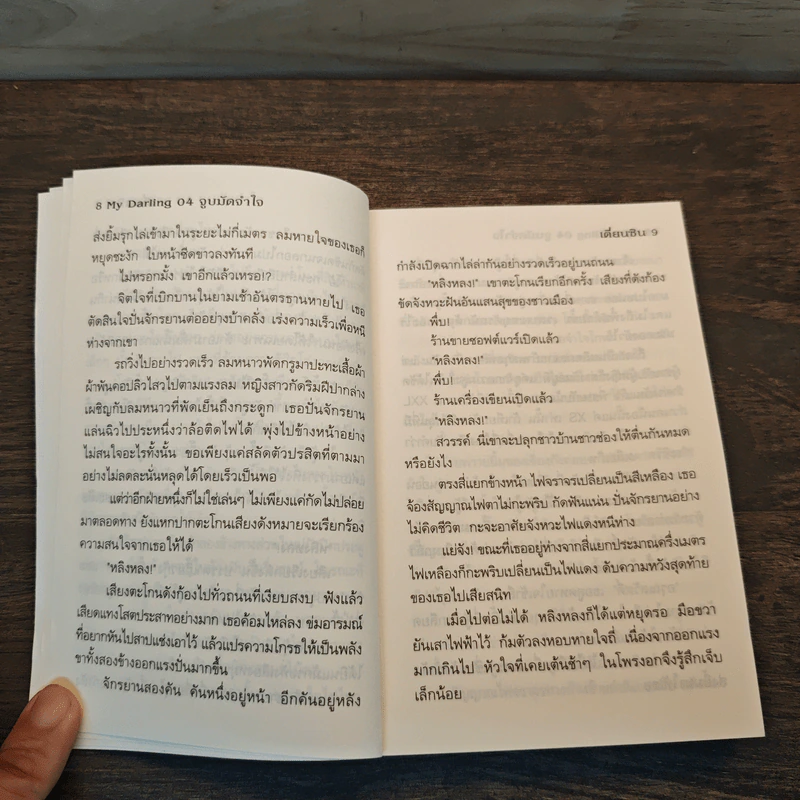 8 My Darling 04 จูบมัดจำใจ
ส่งยิ้มรุกไล่เข้ามาในระยะไม่กี่เมตร ลมหายใจของเธอก็
หยุดชะงัก ใบหน้าซีดขาวลงทันที
ไม่หรอกมั้ง เขาอีกแล้วเหรอ!?
จิตใจที่เบิกบานในยามเช้าอันตรธานหายไป เธอ
ตัดสินใจปั่นจักรยานต่ออย่างบ้าคลั่ง เร่งความเร็วเพื่อหนี
ห่างจากเขา
รถวิ่งไปอย่างรวดเร็ว ลมหนาวพัดกรูมาปะทะเสื้อผ้า
ผ้าพันคอปลิวไสวไปตามแรงลม หญิงสาวกัดริมฝีปากล่าง
เผชิญกับลมหนาวที่พัดเย็นถึงกระดูก เธอปั่นจักรยาน
แล่นฉิวไปประหนึ่งว่าล้อติดไฟได้ พุ่งไปข้างหน้าอย่าง
ไม่สนใจอะไรทั้งนั้น ขอเพียงแค่สลัดตัวปรสิตที่ตามมา
อย่างไม่ลดละนั่นหลุดได้โดยเร็วเป็นพอ
แต่ว่าอีกฝ่ายหนึ่งก็ไม่ใช่เล่นๆ ไม่เพียงแค่กัดไม่ปล่อย
มาตลอดทาง ยังแหกปากตะโกนเสียงดังหมายจะเรียกร้อง
ความสนใจจากเธอให้ได้
"หลิงหลง!"
เสียงตะโกนดังก้องไปทั่วถนนที่เงียบสงบ ฟังแล้ว
เสียดแทงโสตประสาทอย่างมาก เธอค้อมไหล่ลง ข่มอารมณ์
ที่อยากหันไปสาปแช่งเอาไว้ แล้วแปรความโกรธให้เป็นพลัง
ขาทั้งสองข้างออกแรงปั่นมากขึ้น
จักรยานสองคัน คันหนึ่งอยู่หน้า อีกคันอยู่หลัง
เตี่ยนซิน 9
กำลังเปิดฉากไล่ล่ากันอย่างรวดเร็วอยู่บนถนน
"หลิงหลง!" เขาตะโกนเรียกอีกครั้ง เสียงที่ดังก้อง
ขัดจังหวะฝันอันแสนสุขของชาวเมือง
พึ่บ!
ร้านขายซอฟต์แวร์เปิดแล้ว
"หลิงหลง!"
พึ่บ!
ร้านเครื่องเขียนเปิดแล้ว
"หลิงหลง!"
สวรรค์ นี่เขาจะปลุกชาวบ้านชาวช่องให้ตื่นกันหมด
หรือยังไง
ตรงสี่แยกข้างหน้า ไฟจราจรเปลี่ยนเป็นสีเหลือง เธอ
จ้องสัญญาณไฟตาไม่กะพริบ กัดฟันแน่น ปั่นจักรยานอย่าง
ไม่คิดชีวิต กะจะอาศัยจังหวะไฟแดงหนีห่าง
แย่จัง! ขณะที่เธออยู่ห่างจากสี่แยกประมาณครึ่งเมตร
ไฟเหลืองก็กะพริบเปลี่ยนเป็นไฟแดง ดับความหวังสุดท้าย
ของเธอไปเสียสนิท
เมื่อไปต่อไม่ได้ หลิงหลงก็ได้แต่หยุดรอ มือขวา
ยันเสาไฟฟ้าไว้ ก้มตัวลงหอบหายใจถี่ เนื่องจากออกแรง
มากเกินไป หัวใจที่เคยเต้นช้าๆ ในโพรงอกจึงรู้สึกเจ็บ
เล็กน้อย